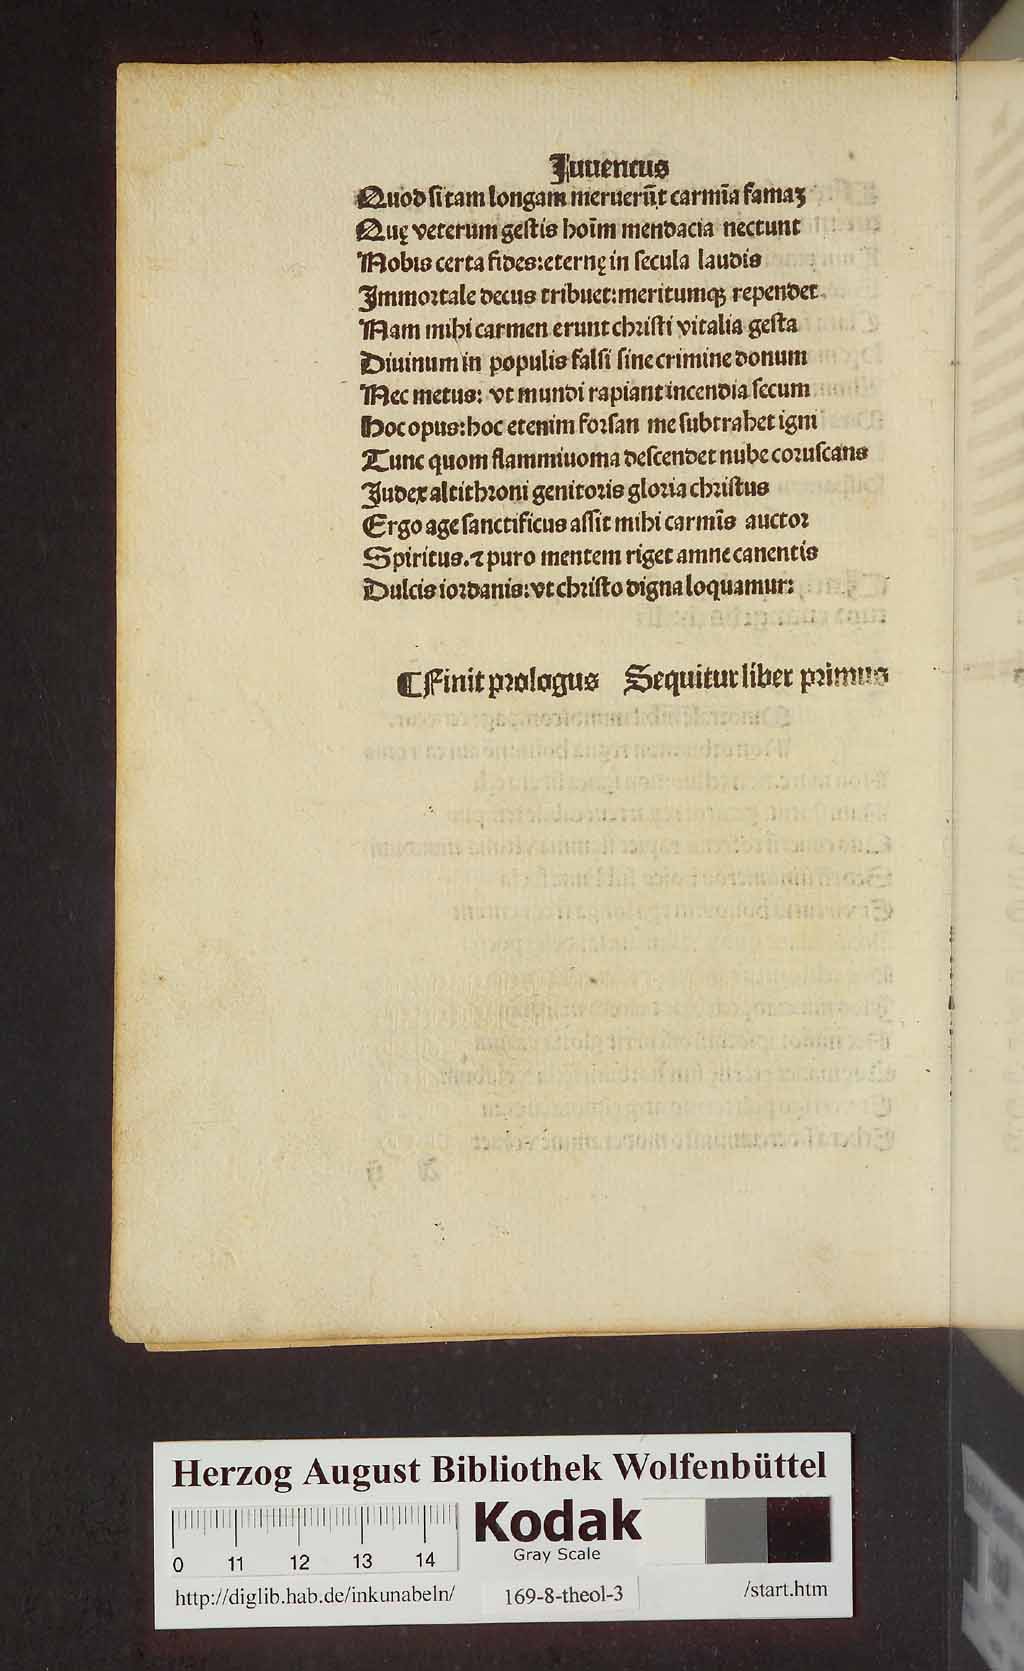 Juuencus
Quod si tam longam meruerūt carmīa famaꝫ
Quę veterum gestis hoīm mendacia nectunt
Nobis certa fides: eternę in secula laudis
Immortale decus tribuet: meritumqꝫ rependet
Nam mihi carmen erunt christi vitalia gesta
Diuinum in populis falsi sine crimine donum
Nec metus: vt mundi rapiant incendia secum
Hoc opus: hoc etenim forsan me subtrahet igni
Tunc quom flammiuoma descendet nube coruscans
Judex altithroni genitoris gloria christus
Ergo age sanctificus assit mihi carmīs auctor
Spiritus. ⁊ puro mentem riget amne canentis
Dulcis iordanis: vt christo digna loquamur:
¶Finit prologus Sequitur liber primus
Herzog August Bibliothek Wolfenbüttel
Kodak
Gray Scale
0 11 12 13 14
http://diglib.hab.de/inkunabeln/ 169-8-theol-3 /start.htm